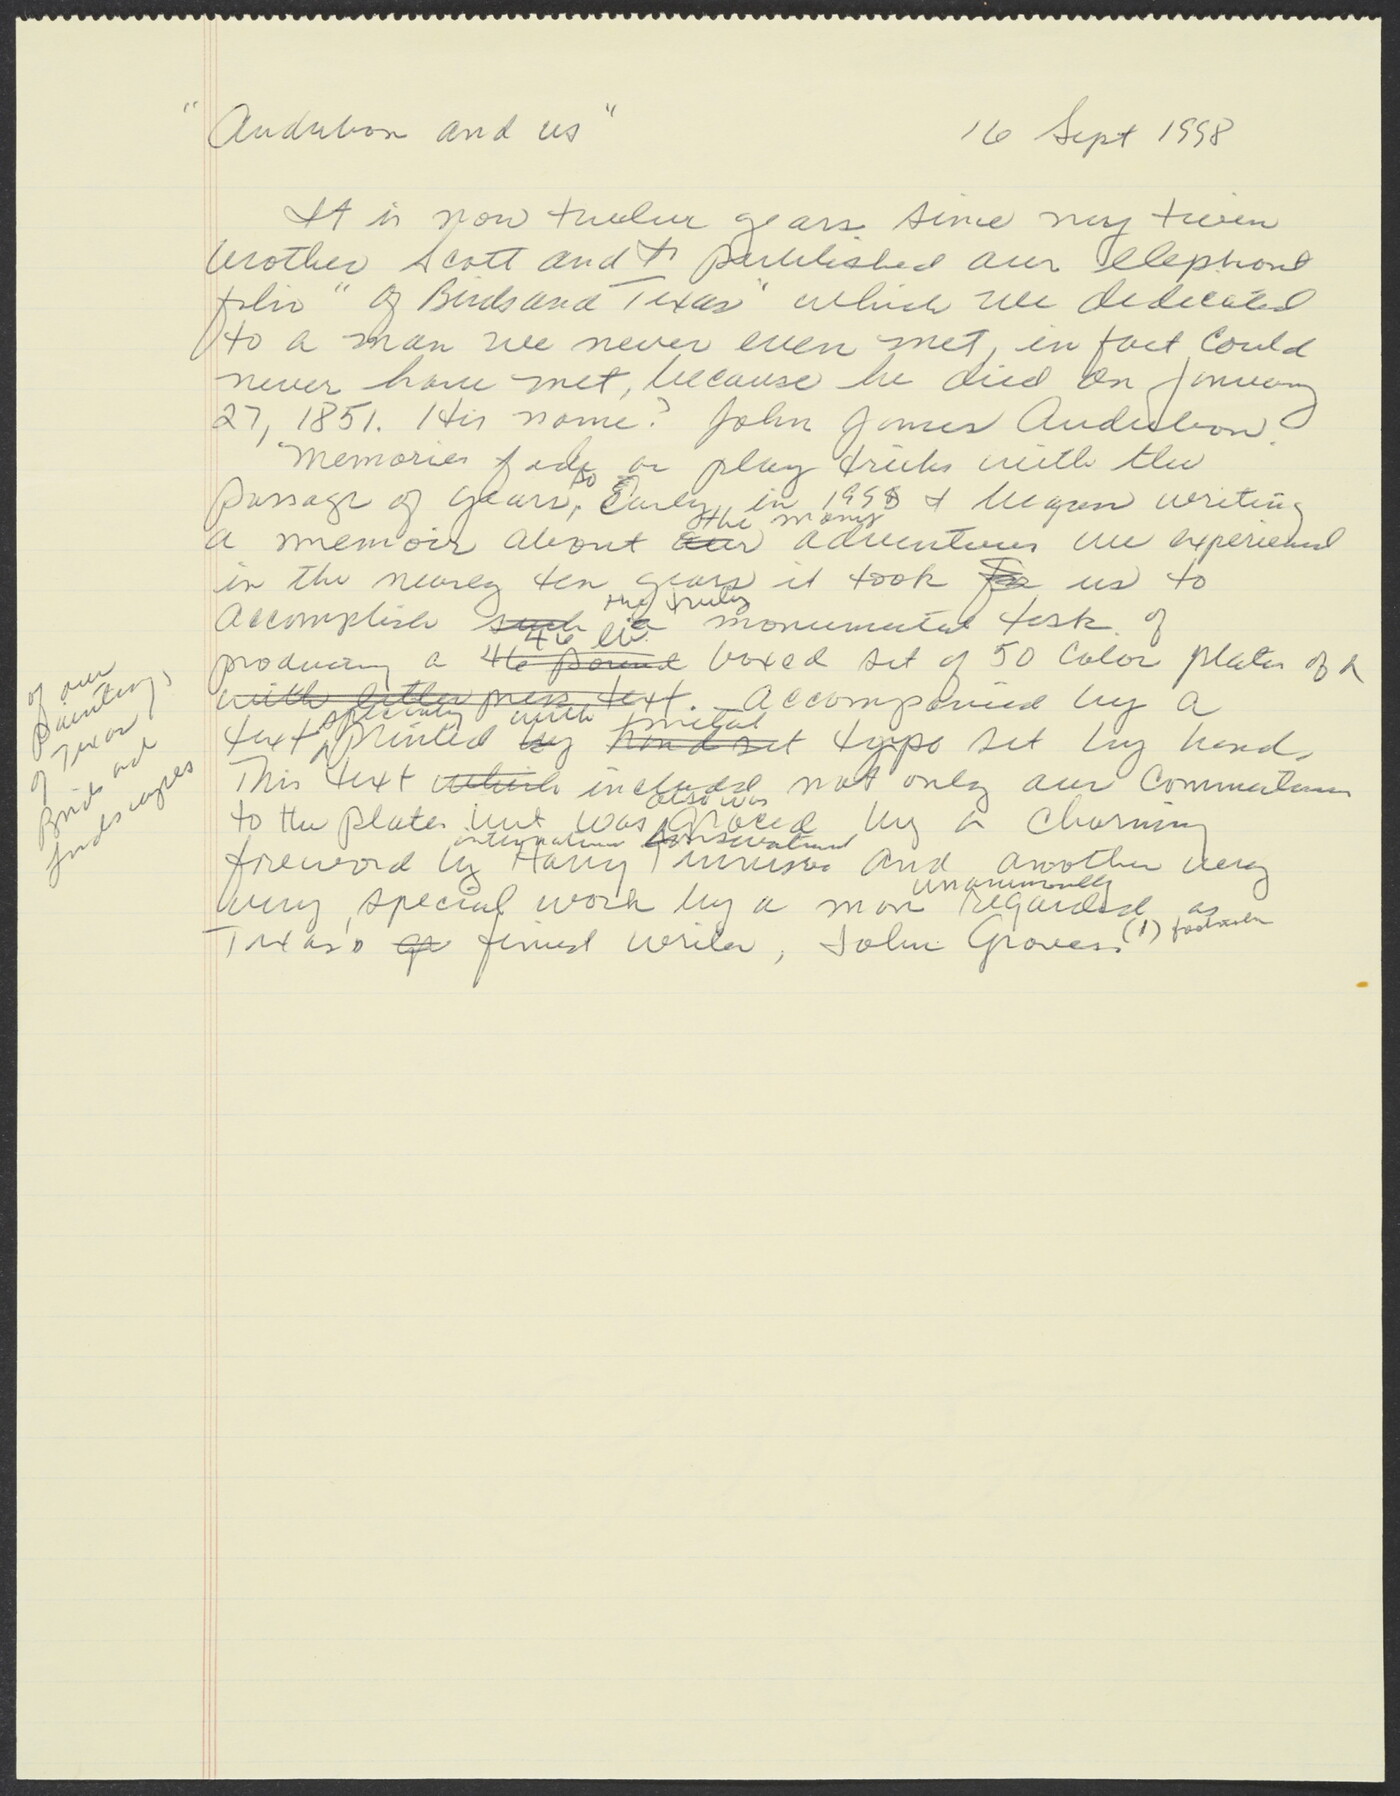 "Audubon and us"
16 Sept 1998
It is now twelve years since my twin
brother Scott and I published our elephant
folio "Of Birds and Texas" which we dedicated
to a man we never even met, in fact could
never have met, because he died on January
27, 1851. His name? John James Audubon.
Memories fade or play tricks with the
passage of years, so
Early in 1998 I began writing
the many
a memoir about our adventures we experienced
in the nearly ten years it took for us to
the truly
accomplish such a monumental task of
46 lb.
producing a 46 pound boxed set of 50 color plates of
of our
paintings
of Texas
Birds and
landscapes
with letter press text. accompanied by a
specially with metal
text printed by hand set type set by hand.
This text which included not only our commentaries
also was
to the plates but was graced by a charming
international conservationist
foreword by Harry and another very
unanimously
very special work by a man regarded as
Texas's finest writer, John Graves. (1) footnote